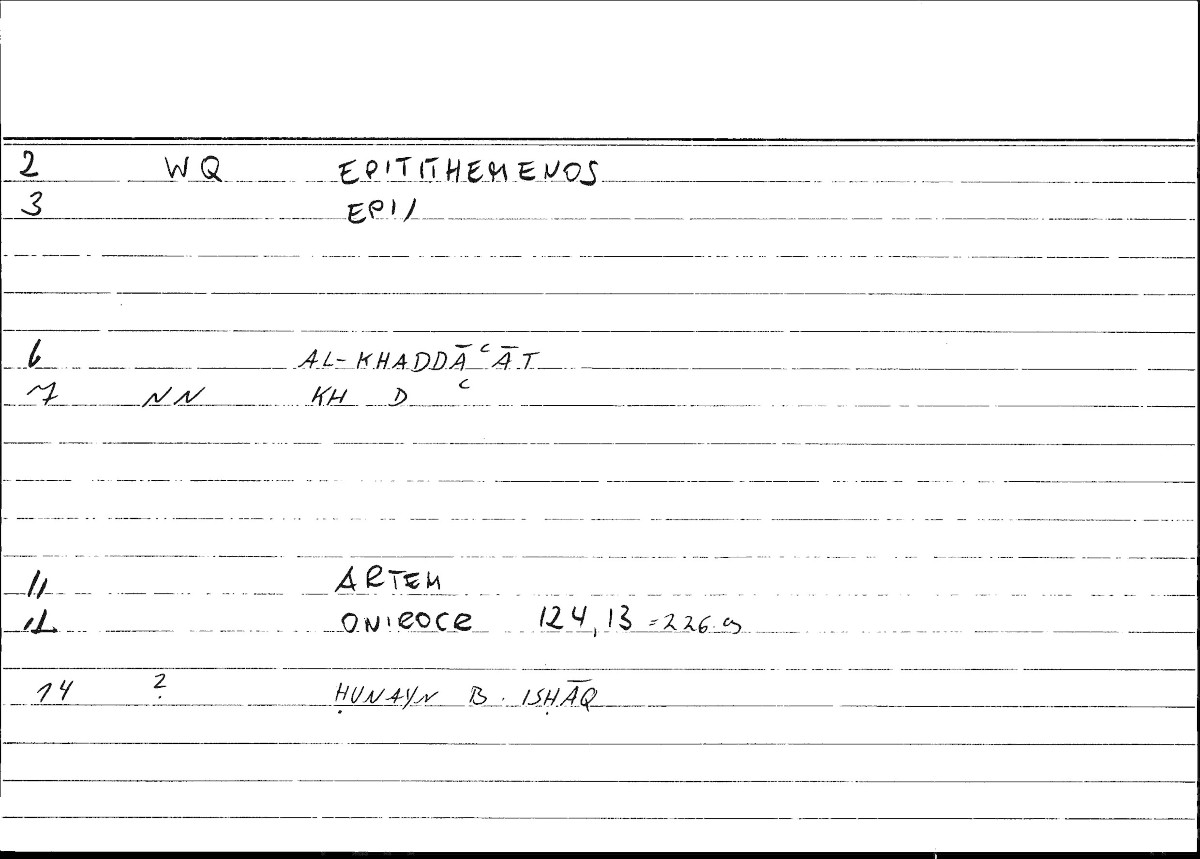 2 WQ EPITITHEMENOS
3 EPI/
6 AL-KHADDĀᶜĀT
7 NN KH D ᶜ
11 ARTEM
12 ONIROCR 124,13 =226.9
14 ? ḤUNAYN B. ISḤĀQ